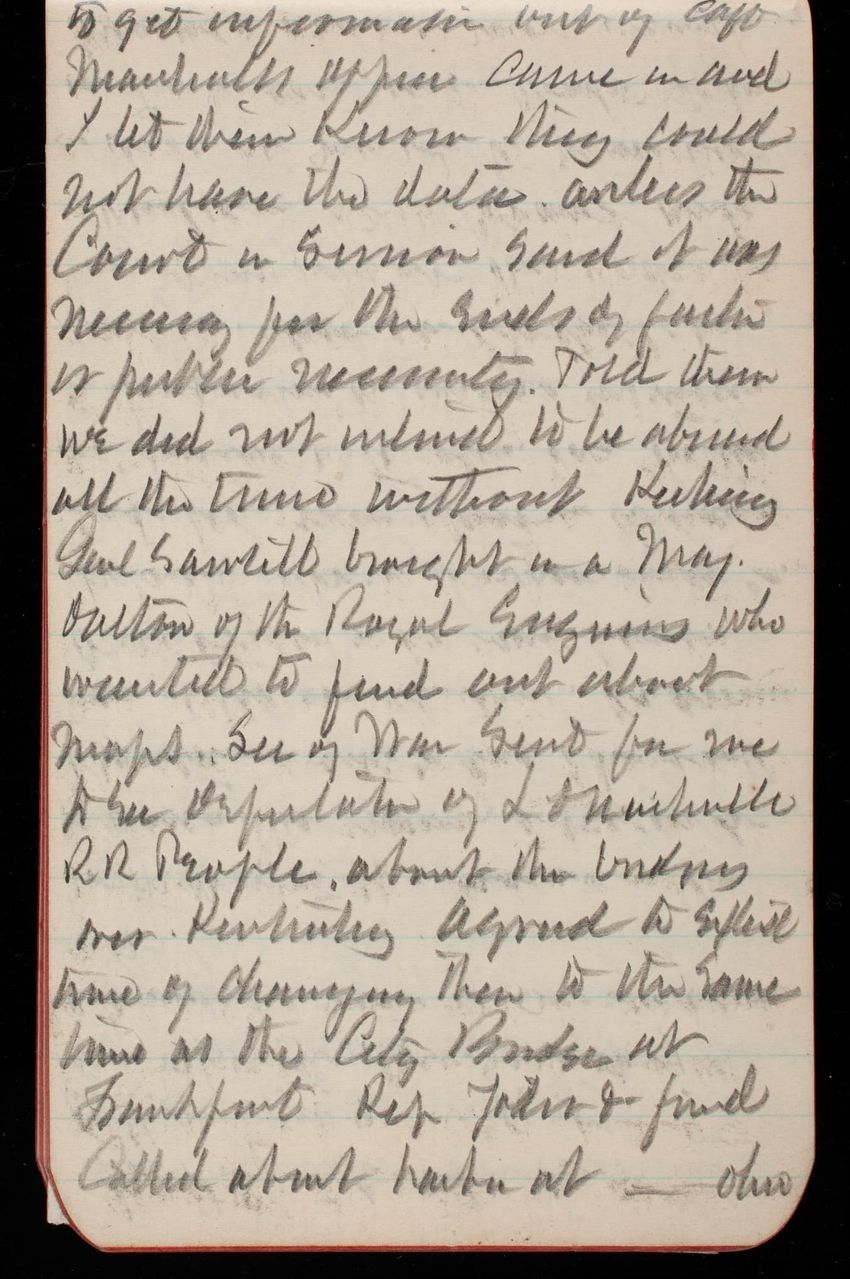 to get information out of Capt
Marshalls office came in and
I let them Know they could
not have the data. unless the
Court in Session Said it was
necessary for the Ends of justice
or public necessity. Told them
we did not intend to be abused
all the time without Kicking
Genl Sawtell brought in a Maj.
Dalton of the Royal Engineers who
wanted to find out about
maps. Sec of War Sent for me
to See deputation of L & Nashville
RR People, about the bridges
over Kentucky agreed to Extend
time of changing them to the Same
time as the City Bridge at
Frankfort Rep Yoder & friend
Called about harbor at — Ohio